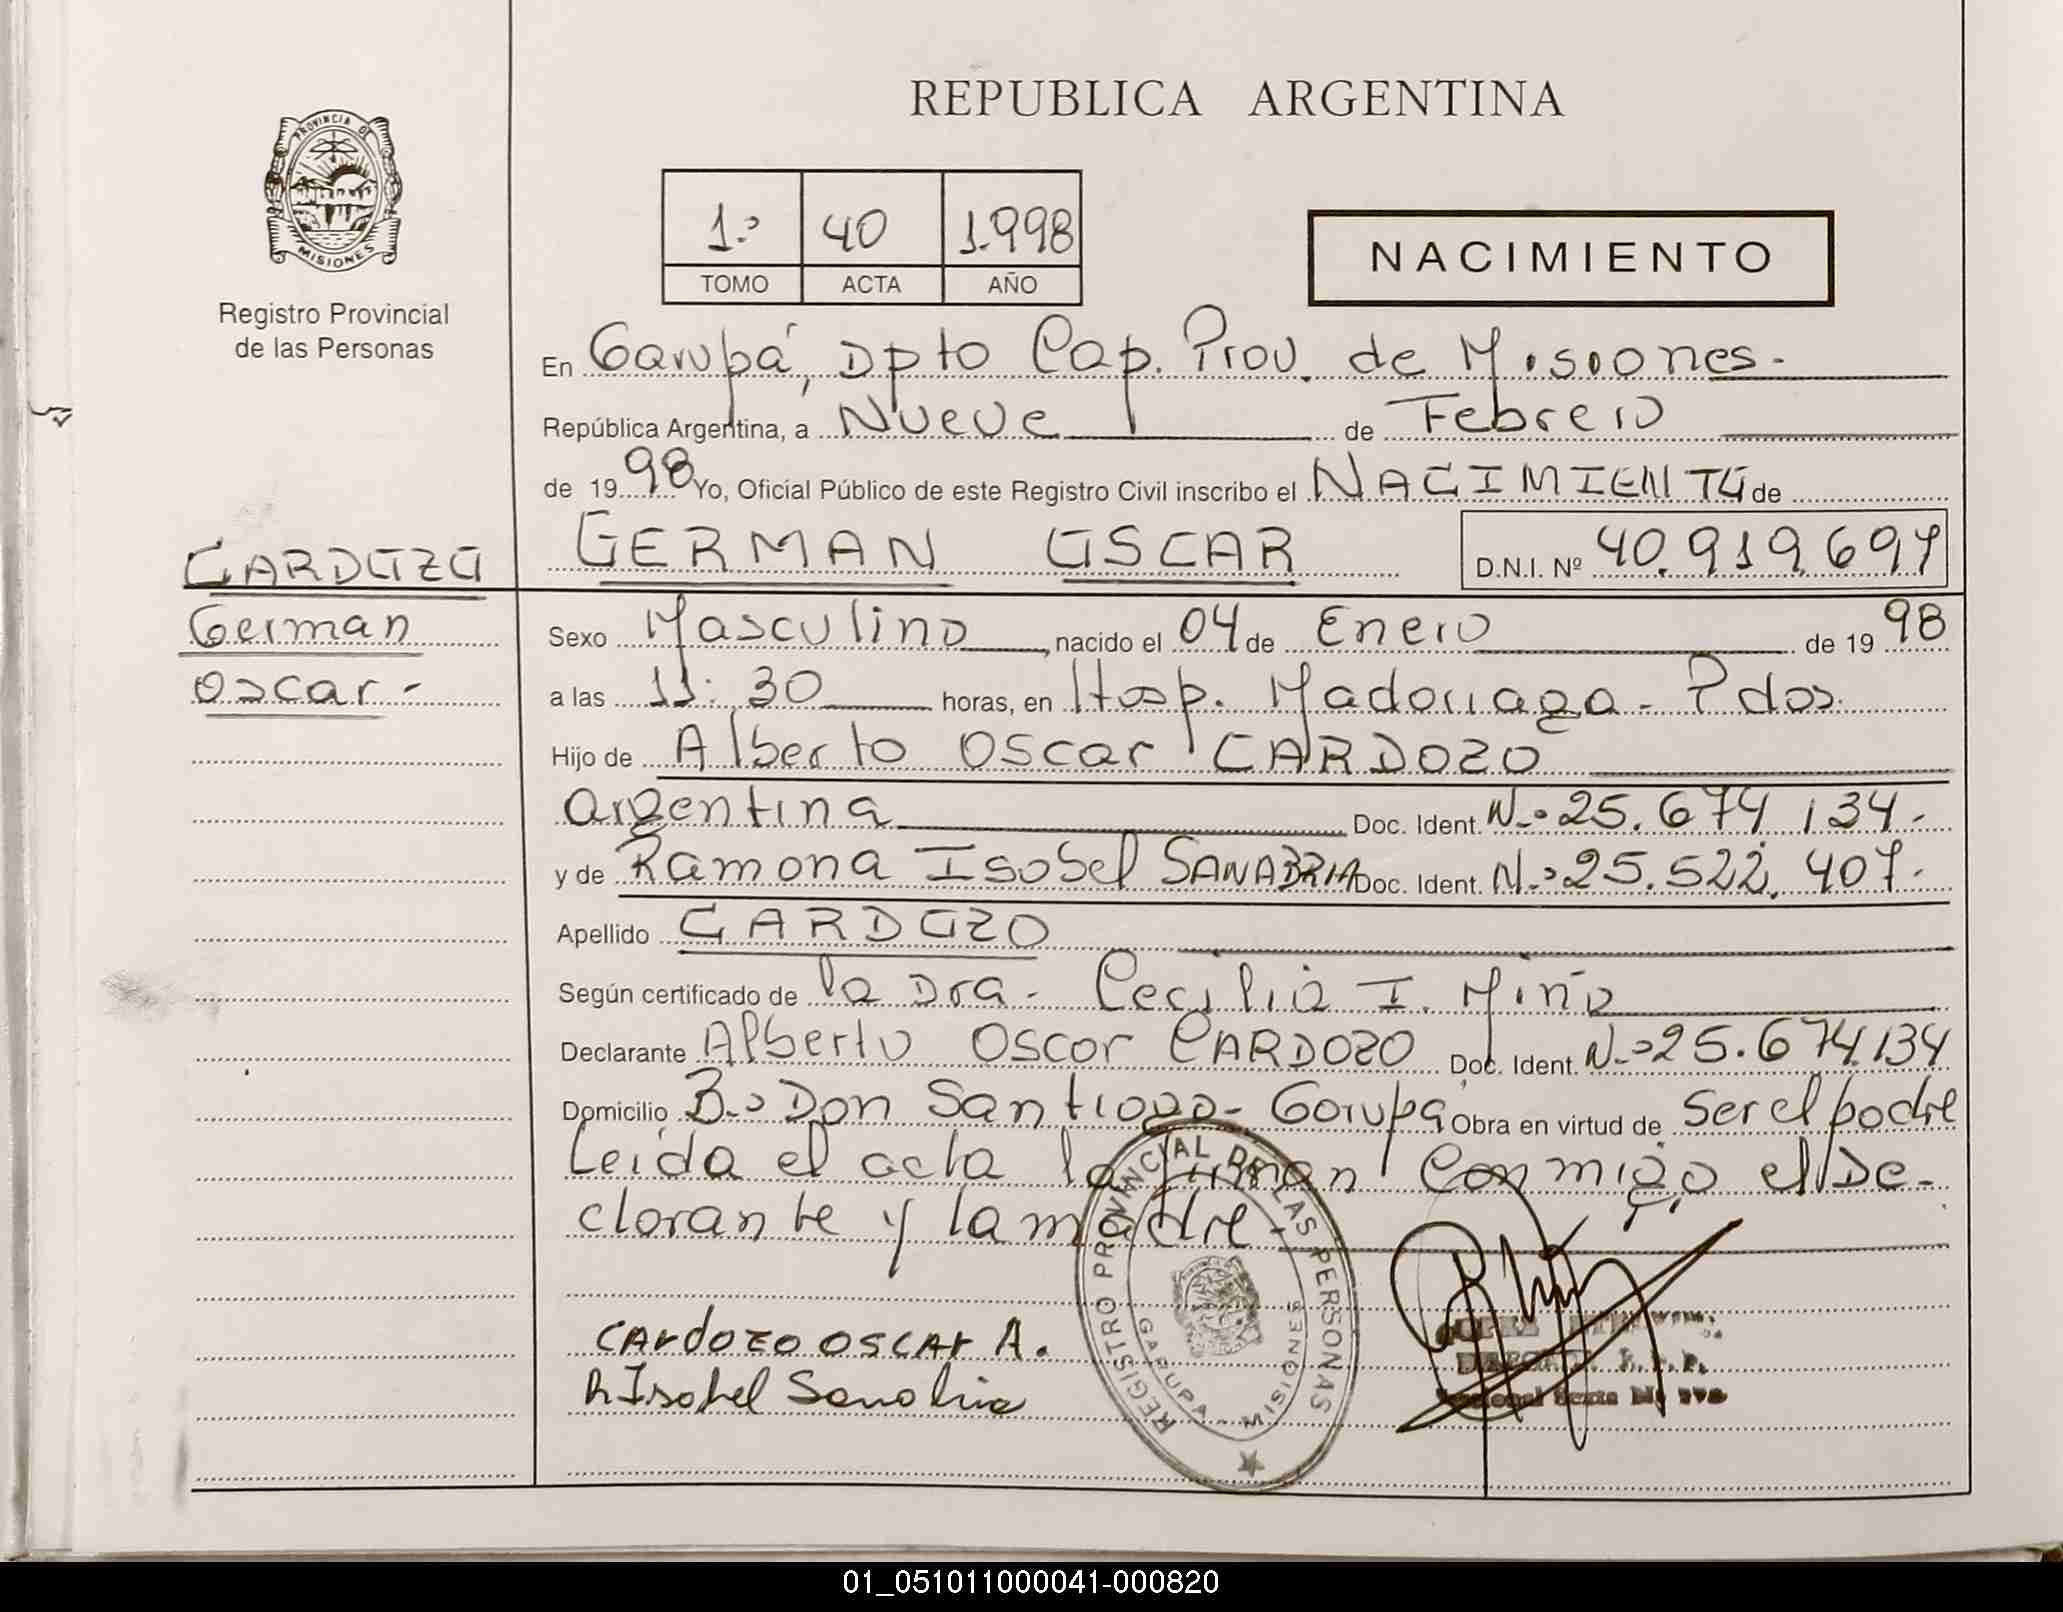 REPUBLICA ARGENTINA
PROVINCIA DE
MISIONES
Registro Provincial
de las Personas
1.º 40 1.998
TOMO ACTA AÑO
NACIMIENTO
En Garupá, Dpto Cap. Prov. de Misiones.-
República Argentina, a Nueve de Febrero
de 1998 Yo, Oficial Público de este Registro Civil inscribo el NACIMIENTO de
GERMAN OSCAR D.N.I. Nº 40.919.697
CARDOZO
German
Oscar.-
Sexo Masculino, nacido el 04 de Enero de 1998
a las 11:30 horas, en Hosp. Madariaga - Pdas.
Hijo de Alberto Oscar CARDOZO
argentina Doc. Ident. N.º 25.674.134.-
y de Ramona Isabel SANABRIA Doc. Ident. N.º 25.522.407.-
Apellido CARDOZO
Según certificado de la Dra. Cecilia I. Miño
Declarante Alberto Oscar CARDOZO Doc. Ident. N.º 25.674.134
Domicilio B.º Don Santiago - Garupá Obra en virtud de Ser el padre
Leida el acta la firman conmigo el De-
clarante y la madre.-
CArdozo OSCAr A.
R Isabel Sanabria
REGISTRO PROVINCIAL DE LAS PERSONAS
GARUPA - MISIONES
01_051011000041-000820